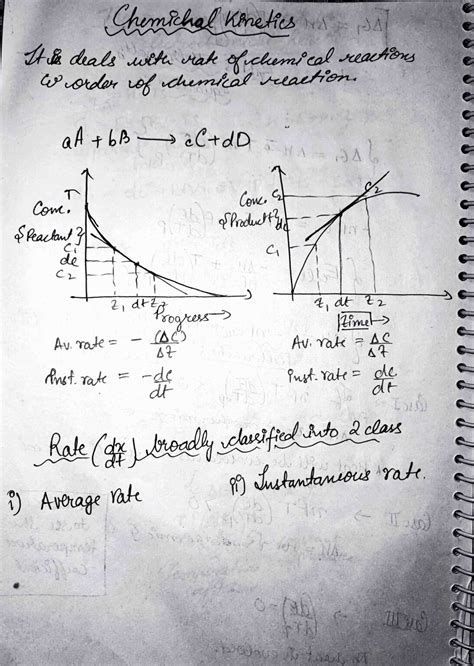 Chemichal Kinetics
It is deals with rate of chemical reactions
& order of chemical reaction.
aA + bB ⟶ cC + dD
Conc. ↑
{Reactant}
C₁
dc
C₂
Z₁ dt Z₂
Progress→
Av. rate = - (ΔC)/ΔZ
Inst. rate = - dc/dt
Conc.
{Product}
C₂
dc
C₁
C₂
Z₁ dt Z₂
Zime→
Av. rate = ΔC/ΔZ
Inst. rate = dc/dt
Rate (dx/dt) broadly classified into 2 class
i) Average rate
ii) Instantaneous rate.